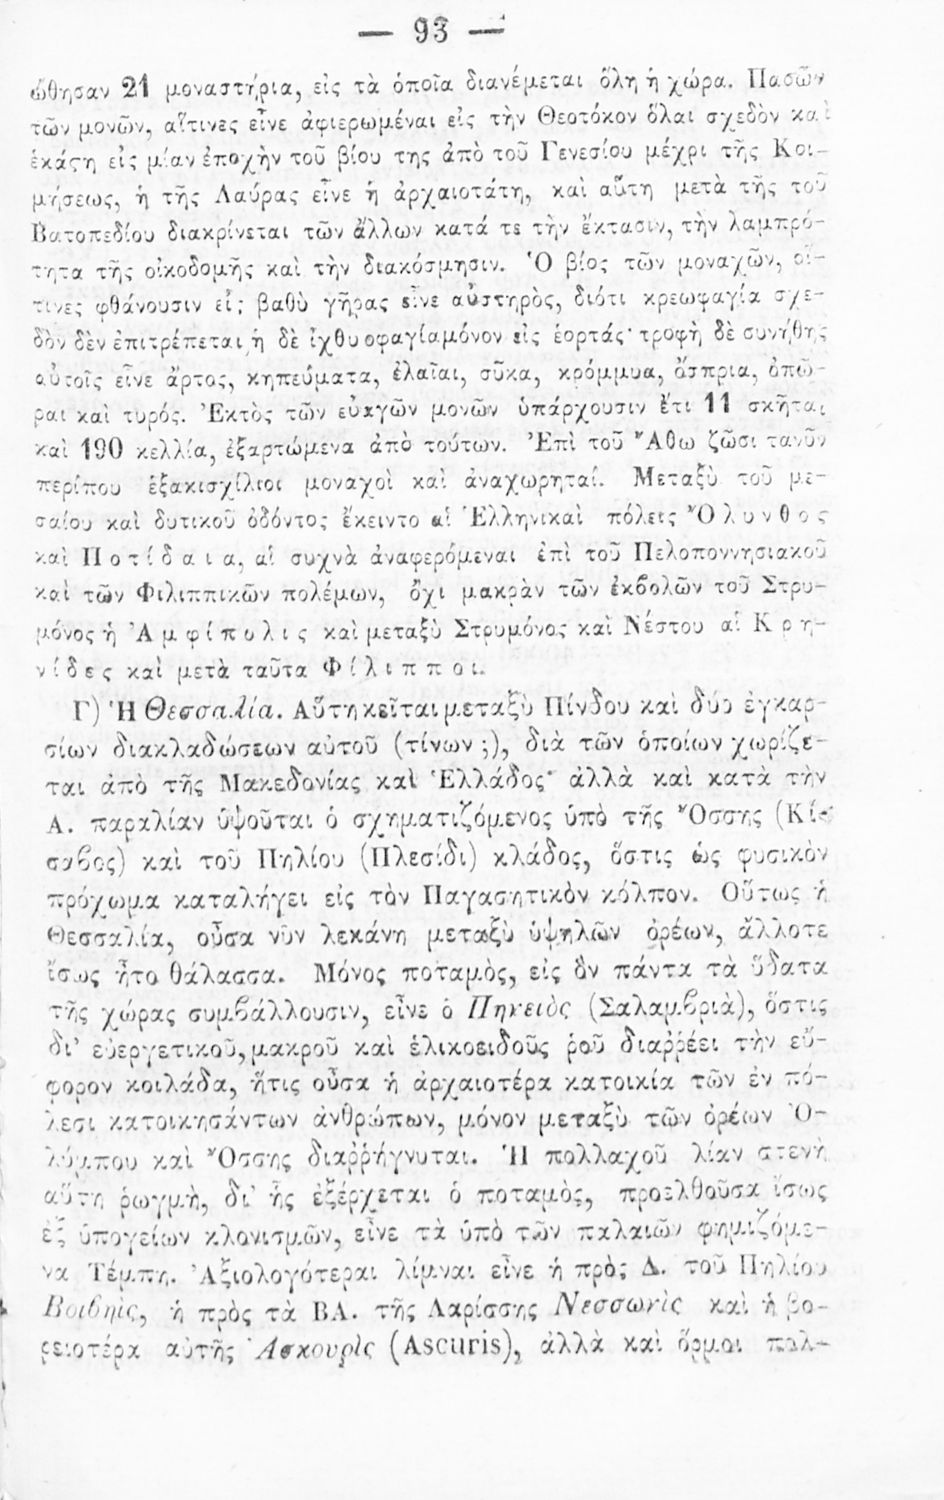 — 93 —
ώθησαν 21 μοναστήρια, εἰς τὰ ὁποῖα διανέμεται ὅλη ἡ χώρα. Πασῶν
τῶν μονῶν, αἵτινες εἶνε ἀφιερωμέναι εἰς τὴν Θεοτόκον ὅλαι σχεδὸν καὶ
ἑκάστη εἰς μίαν ἐποχὴν τοῦ βίου της ἀπὸ τοῦ Γενεσίου μέχρι τῆς Κοι-
μήσεως, ἡ τῆς Λαύρας εἶνε ἡ ἀρχαιοτάτη, καὶ αὕτη μετὰ τῆς τοῦ
Βατοπεδίου διακρίνεται τῶν ἄλλων κατά τε τὴν ἔκτασιν, τὴν λαμπρό-
τητα τῆς οἰκοδομῆς καὶ τὴν διακόσμησιν. Ὁ βίος τῶν μοναχῶν, οἵ-
τινες φθάνουσιν εἰς βαθὺ γῆρας εἶνε αὐστηρὸς, διότι κρεωφαγία σχε-
δὸν δὲν ἐπιτρέπεται, ἡ δὲ ἰχθυοφαγία μόνον εἰς ἑορτάς· τροφὴ δὲ συνήθης
αὐτοῖς εἶνε ἄρτος, κηπεύματα, ἐλαῖαι, σῦκα, κρόμμυα, ὄσπρια, ὀπῶ-
ραι καὶ τυρός. Ἐκτὸς τῶν εὐαγῶν μονῶν ὑπάρχουσιν ἔτι 11 σκῆται
καὶ 190 κελλία, ἐξαρτώμενα ἀπὸ τούτων. Ἐπὶ τοῦ Ἄθω ζῶσι τανῦν
περίπου ἑξακισχίλιοι μοναχοὶ καὶ ἀναχωρηταί. Μεταξὺ τοῦ με-
σαίου καὶ δυτικοῦ ὀδόντος ἔκειντο αἱ Ἑλληνικαὶ πόλεις Ὄλυνθος
καὶ Ποτίδαια, αἱ συχνὰ ἀναφερόμεναι ἐπὶ τοῦ Πελοποννησιακοῦ
καὶ τῶν Φιλιππικῶν πολέμων, ὄχι μακρὰν τῶν ἐκβολῶν τοῦ Στρυ-
μόνος ἡ Ἀμφίπολις καὶ μεταξὺ Στρυμόνος καὶ Νέστου αἱ Κρη-
νίδες καὶ μετὰ ταῦτα Φίλιπποι.
Γ) Ἡ Θεσσαλία. Αὕτη κεῖται μεταξὺ Πίνδου καὶ δύο ἐγκαρ-
σίων διακλαδώσεων αὐτοῦ (τίνων ;), διὰ τῶν ὁποίων χωρίζε-
ται ἀπὸ τῆς Μακεδονίας καὶ Ἑλλάδος· ἀλλὰ καὶ κατὰ τὴν
Α. παραλίαν ὑψοῦται ὁ σχηματιζόμενος ὑπὸ τῆς Ὄσσης (Κίσ-
σαβος) καὶ τοῦ Πηλίου (Πλεσίδι) κλάδος, ὅστις ὡς φυσικὸν
πρόχωμα καταλήγει εἰς τὸν Παγασητικὸν κόλπον. Οὕτως ἡ
Θεσσαλία, οὖσα νῦν λεκάνη μεταξὺ ὑψηλῶν ὀρέων, ἄλλοτε
ἴσως ἦτο θάλασσα. Μόνος ποταμὸς, εἰς ὃν πάντα τὰ ὕδατα
τῆς χώρας συμβάλλουσιν, εἶνε ὁ Πηνειὸς (Σαλαμβριὰ), ὅστις
δι’ εὐεργετικοῦ, μακροῦ καὶ ἑλικοειδοῦς ῥοῦ διαῤῥέει τὴν εὔ-
φορον κοιλάδα, ἥτις οὖσα ἡ ἀρχαιοτέρα κατοικία τῶν ἐν πό-
λεσι κατοικησάντων ἀνθρώπων, μόνον μεταξὺ τῶν ὀρέων Ὀ-
λύμπου καὶ Ὄσσης διαῤῥήγνυται. Ἡ πολλαχοῦ λίαν στενὴ
αὕτη ῥωγμὴ, δι’ ἧς ἐξέρχεται ὁ ποταμὸς, προελθοῦσα ἴσως
ἐξ ὑπογείων κλονισμῶν, εἶνε τὰ ὑπὸ τῶν παλαιῶν φημιζόμε-
να Τέμπη. Ἀξιολογότεραι λίμναι εἶνε ἡ πρὸς Δ. τοῦ Πηλίου
Βοιβηὶς, ἡ πρὸς τὰ ΒΑ. τῆς Λαρίσσης Νεσσωνὶς καὶ ἡ βο-
ρειοτέρα αὐτῆς Ἀσκουρὶς (Ascuris), ἀλλὰ καὶ ὅρμοι πολ-